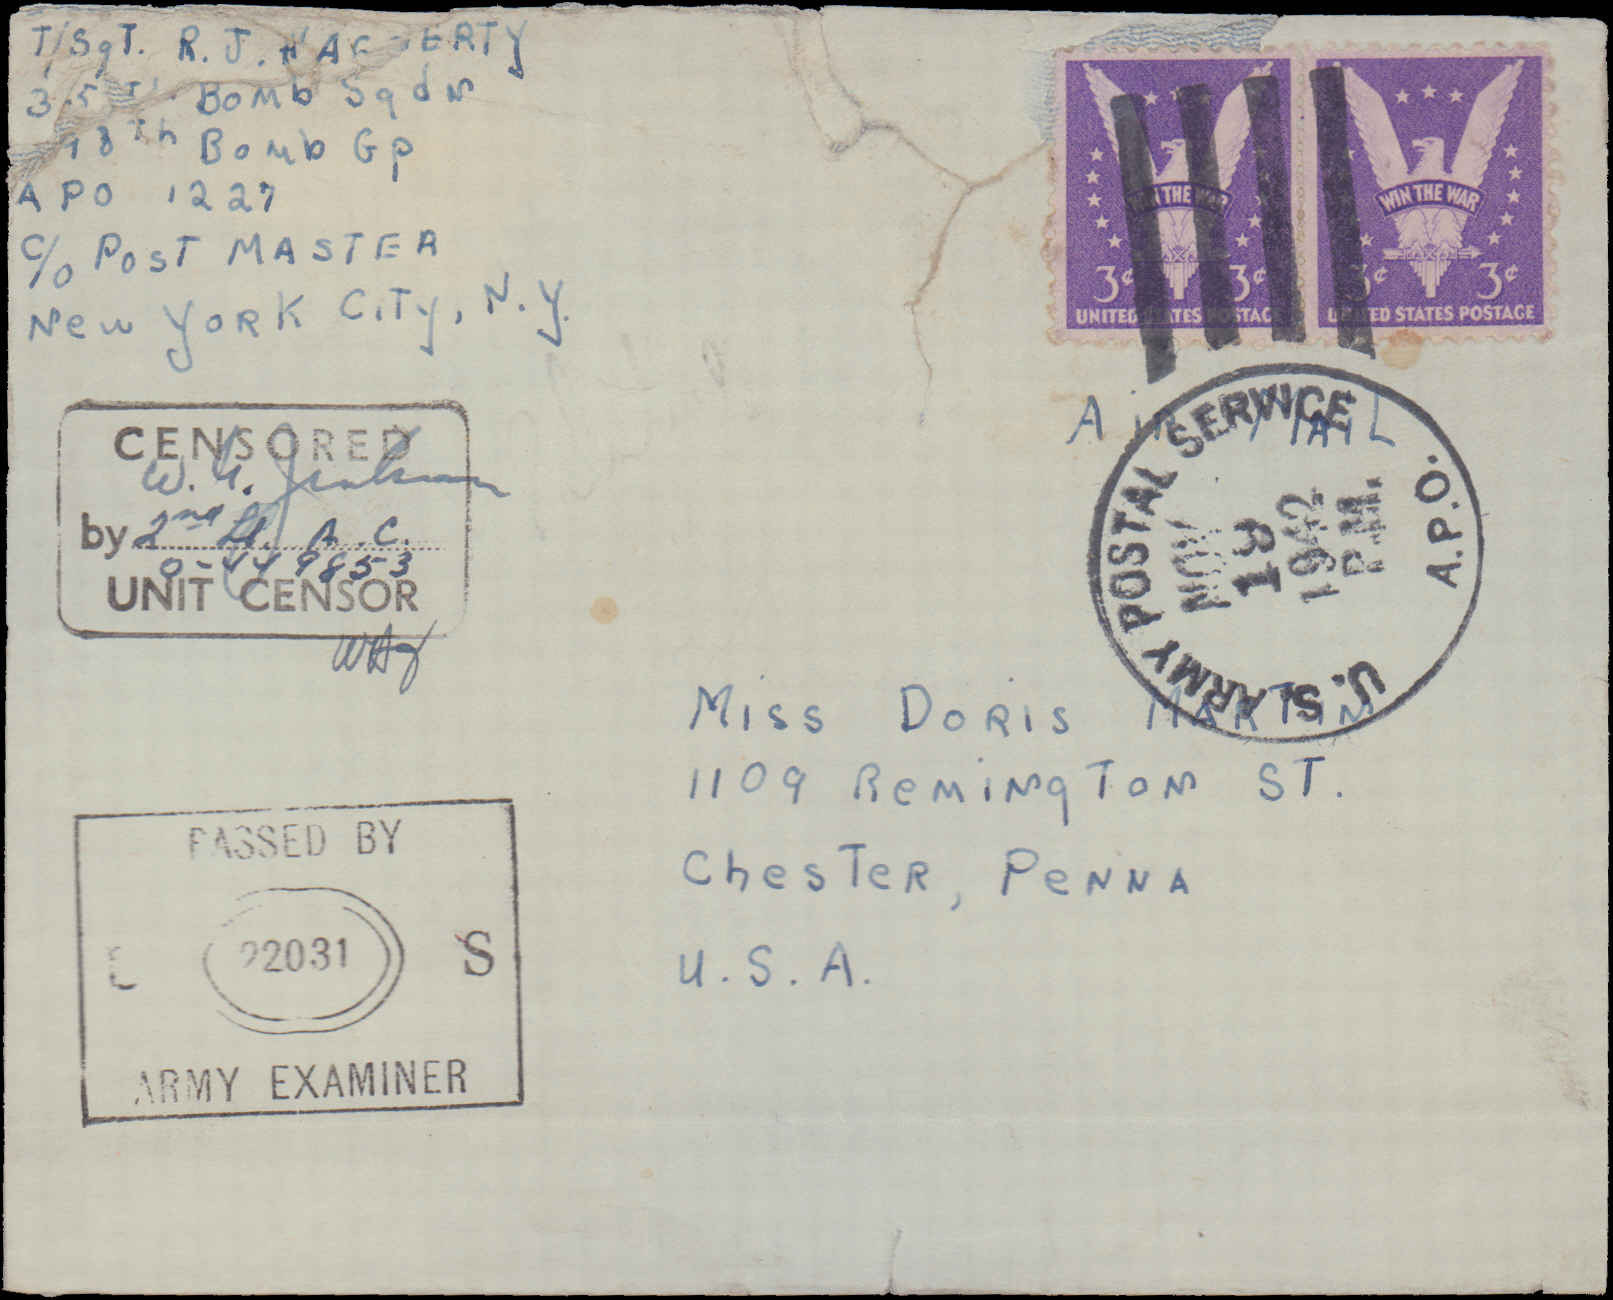 T/SgT. R. J. HAGGERTY
35Th Bomb Sqdn
Bomb Gp
APO 1227
C/O POST MASTER
New YORK CiTy, N.Y.
WIN THE WAR
3¢ 3¢
UNITED STATES POSTAGE
WIN THE WAR
3¢ 3¢
UNITED STATES POSTAGE
Air MAIL
U.S. ARMY POSTAL SERVICE
A.P.O.
NOV
19
1942
P.M.
CENSORED
W.
by 2nd Lt. A.C.
0-449853
UNIT CENSOR
Miss DORiS MARTIN
1109 RemingTon ST.
ChesTeR, PeNNA
U.S.A.
PASSED BY
22031
S
ARMY EXAMINER